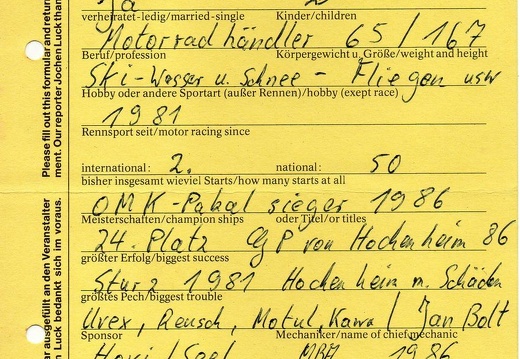 Please fill out this formular and return
ment. Our reporter Jochen Luck than
ar ausgefüllt an den Veranstalter
n Luck bedankt sich im voraus.
Ja 2
verheiratet-ledig/married-single Kinder/children
Motorradhändler 65 / 167
Beruf/profession Körpergewicht u. Größe/weight and height
Ski-Wasser u. Schnee - Fliegen usw
Hobby oder andere Sportart (außer Rennen)/hobby (exept race)
1981
Rennsport seit/motor racing since
international: 2. national: 50
bisher insgesamt wieviel Starts/how many starts at all
OMK-Pokalsieger 1986
Meisterschaften/champion ships oder Titel/or titles
24. Platz GP von Hockenheim 86
größter Erfolg/biggest success
Sturz 1981 Hockenheim m. Schäden
größtes Pech/biggest trouble
Uvex, Reusch, Motul, Kawa / Jan Bolt
Sponsor Mechaniker/name of chief mechanic
1986